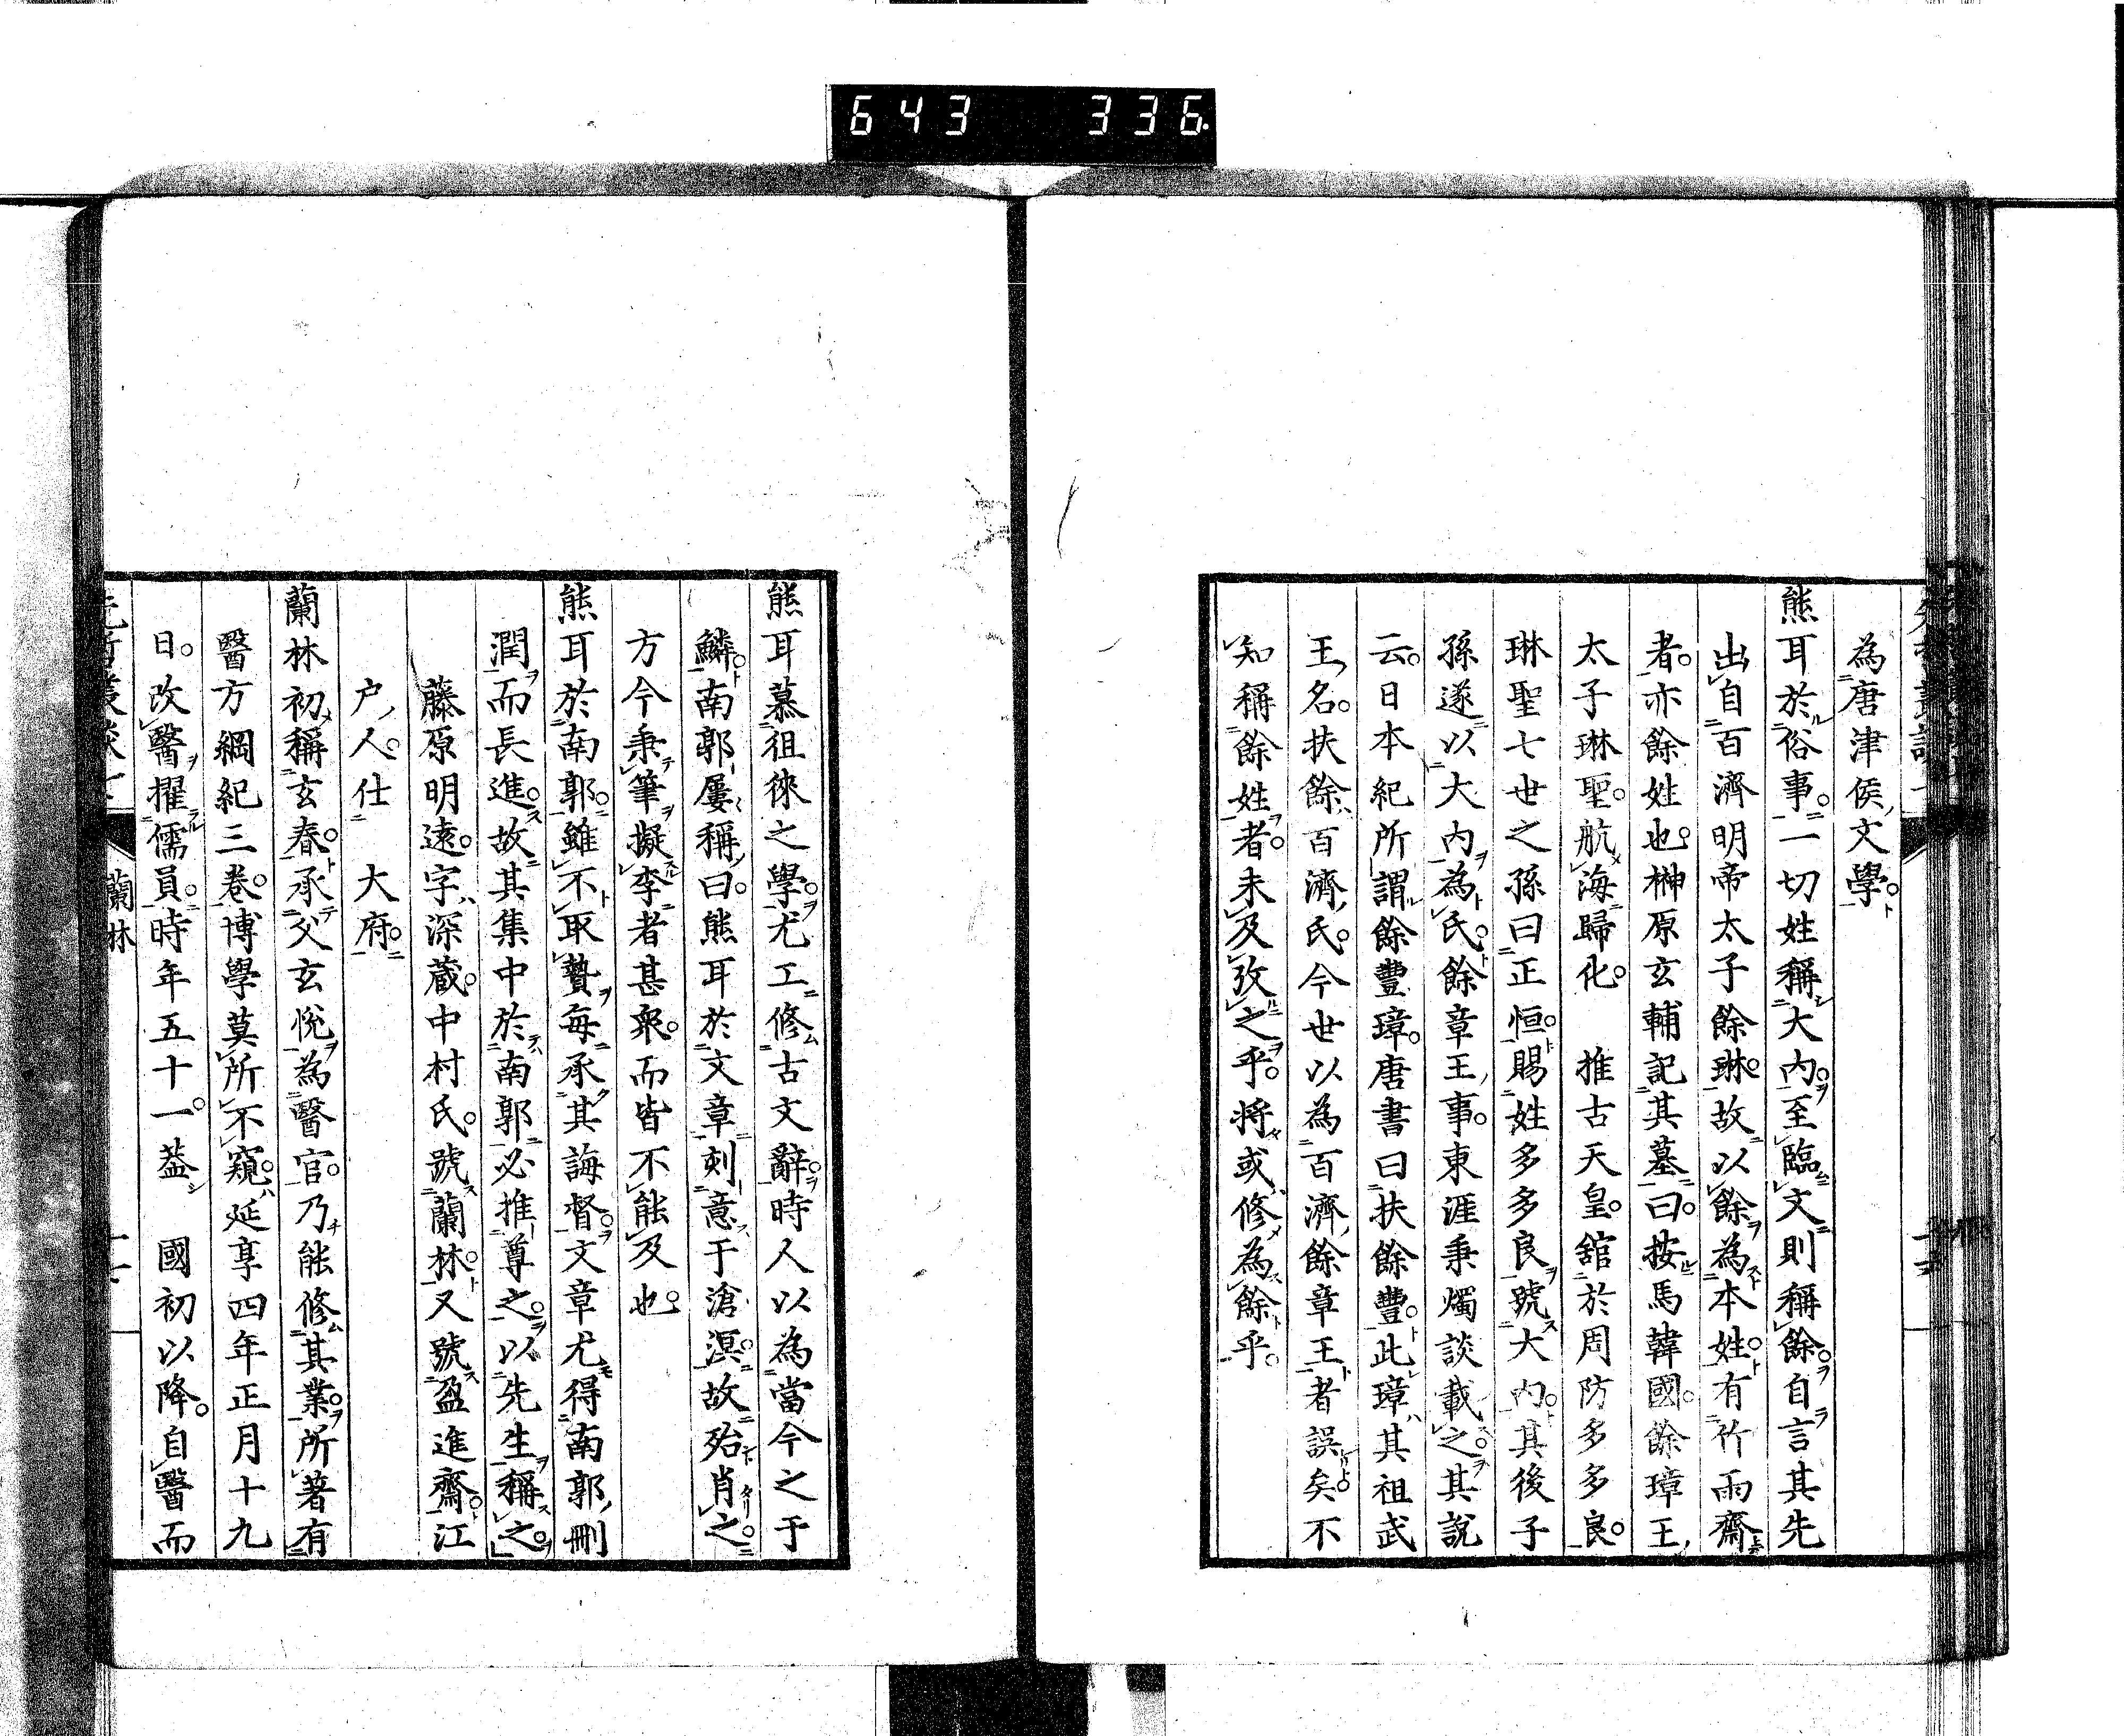 643 336
為唐津侯文學。
熊耳於俗事。一切姓稱大内。至臨文則稱餘。自言其先
出自百濟明帝太子餘琳。故以餘為本姓。有竹雨齋
者。亦餘姓也。榊原玄輔記其墓曰。按馬韓國。餘璋王
太子琳聖。航海歸化。 推古天皇。舘於周防多多良。
琳聖七世之孫曰正恒。賜姓多多良號大内。其後子
孫遂以大内為氏。餘章王事。東涯秉燭談載之。其說
云。日本紀所謂餘豐璋。唐書曰扶餘豐。此璋其祖武
王名。扶餘百濟氏。今世以為百濟餘章王者誤矣。不
知稱餘姓者。未及攷之乎。将或修為餘乎。
熊耳慕徂徠之學。尤工修古文辭。時人以為當今之于
鱗。南郭屢稱曰。熊耳於文章刻意于滄溟。故殆肖之。
方今秉筆擬李者甚衆。而皆不能及也。
熊耳於南郭。雖不取贄每承其誨督。文章尤得南郭刪
潤而長進。故其集中於南郭必推尊之。以先生稱之。
藤原明遠。字深蔵。中村氏。號蘭林。又號盈進齋。江
戸人。仕 大府。
蘭林初稱玄春。承父玄悅為醫官。乃能修其業。所著有
醫方綱紀三卷。博學莫所不窺。延享四年正月十九
日。改醫擢儒員。時年五十一。葢 國初以降。自醫而
蘭林